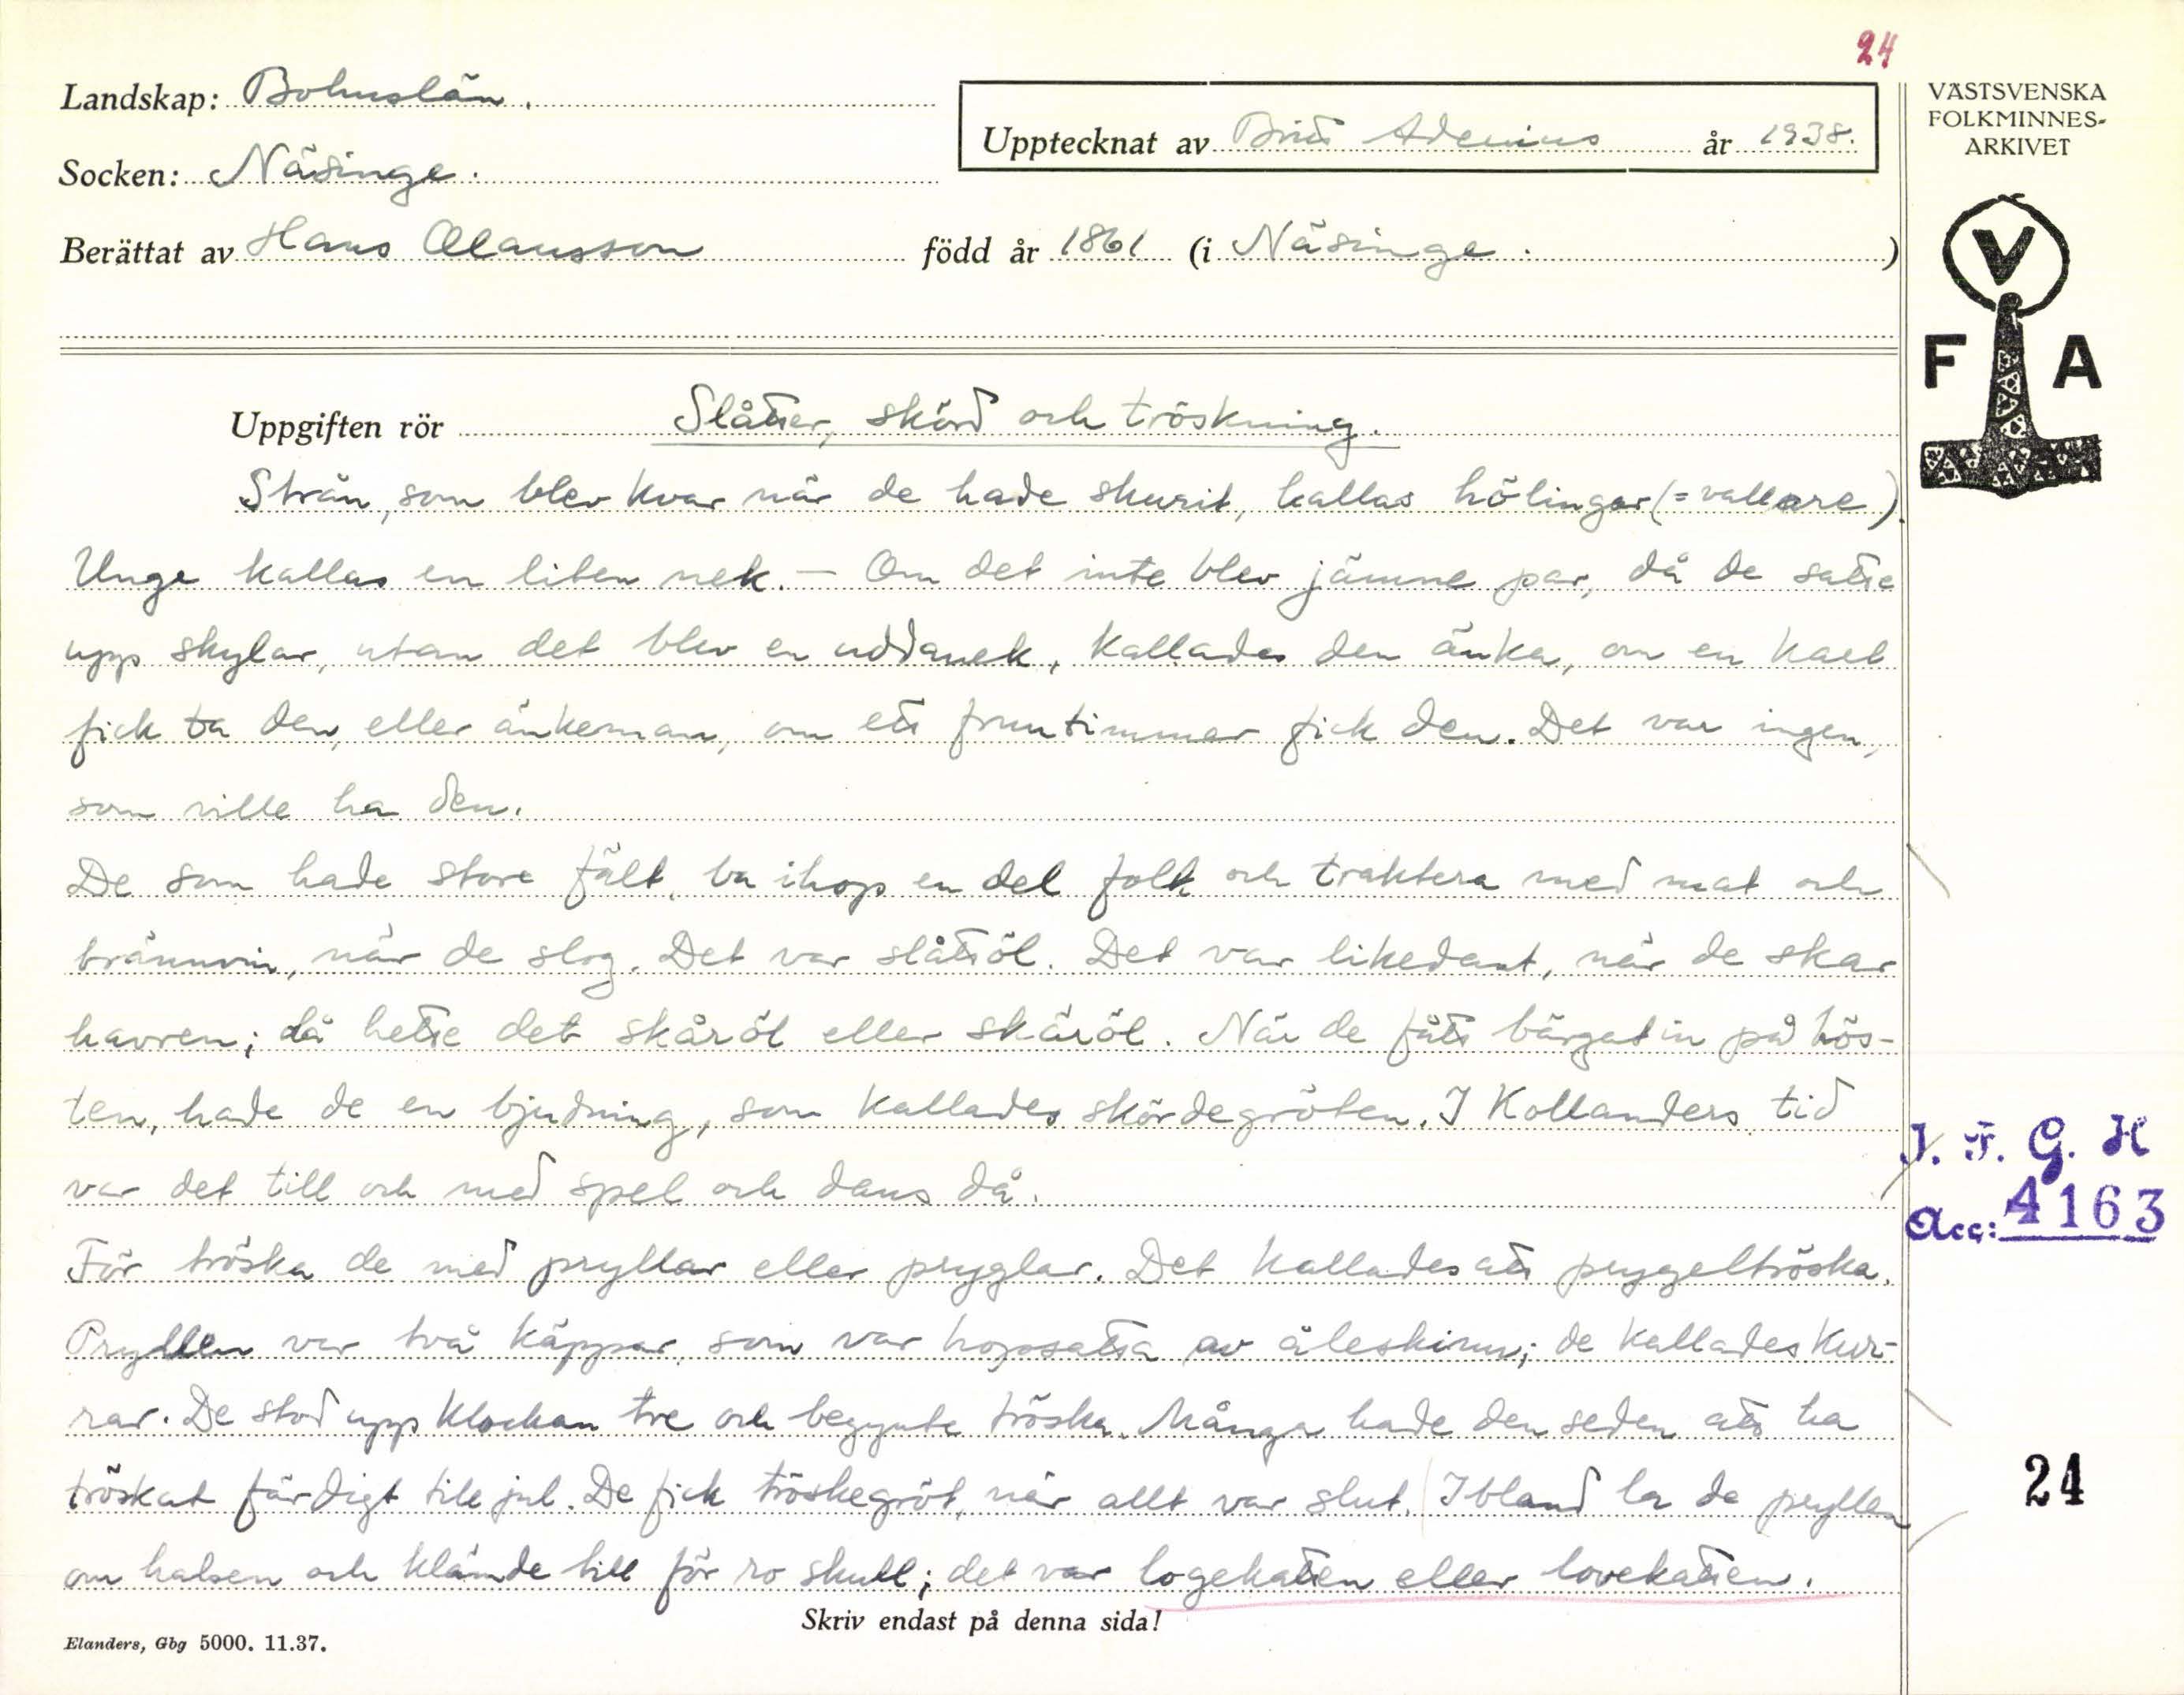 24
Landskap: Bohuslän.
Upptecknat av Britt Adenius år 1938.
VÄSTSVENSKA
FOLKMINNES-
ARKIVET
Socken: Näsinge.
Berättat av Hans Olausson född år 1861 (i Näsinge.)
V
F A
Uppgiften rör Slåtter, skörd och tröskning.
Strån, som blev kvar när de hade skurit, kallas hölingar (= vallare).
Unge kallas en liten nek. — Om det inte blev jämne par, då de satte
upp skylar, utan det blev en uddanek, kallades den änka, om en karl
fick ta den, eller änkeman, om ett fruntimmer fick den. Det var ingen,
som ville ha den.
De som hade store fält, ba ihop en del folk och traktera med mat och
brännvin, när de slog. Det var slåttöl. Det var likedant, när de skar
havren; då hette det skåröl eller skäröl. När de fått bärgat in på hös-
ten, hade de en bjudning, som kallades skördegröten. I Kollanders tid
var det till och med spel och dans då.
J. F. G. H
Acc: 4163
För tröska de med pryllar eller pryglar. Det kallades att prygeltröska.
Pryllen var två käppar, som var hopsatta av åleskinn; de kallades kur-
rar. De stod upp klockan tre och begynte tröska. Många hade den seden att ha
tröskat färdigt till jul. De fick tröskegröt, när allt var slut. Ibland la de pryllen
24
om halsen och klämde till för ro skull; det var logekatten eller lovekatten.
Skriv endast på denna sida!
Elanders, Gbg 5000. 11.37.